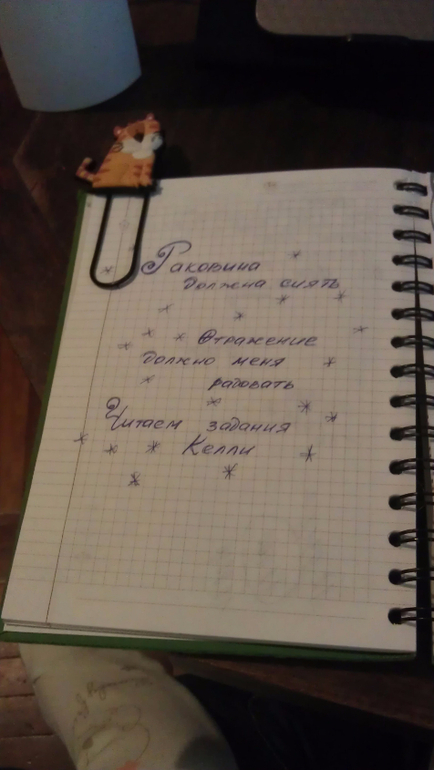 Раковина
должна сиять
Отражение
должно меня
радовать
Читаем задания
Келли